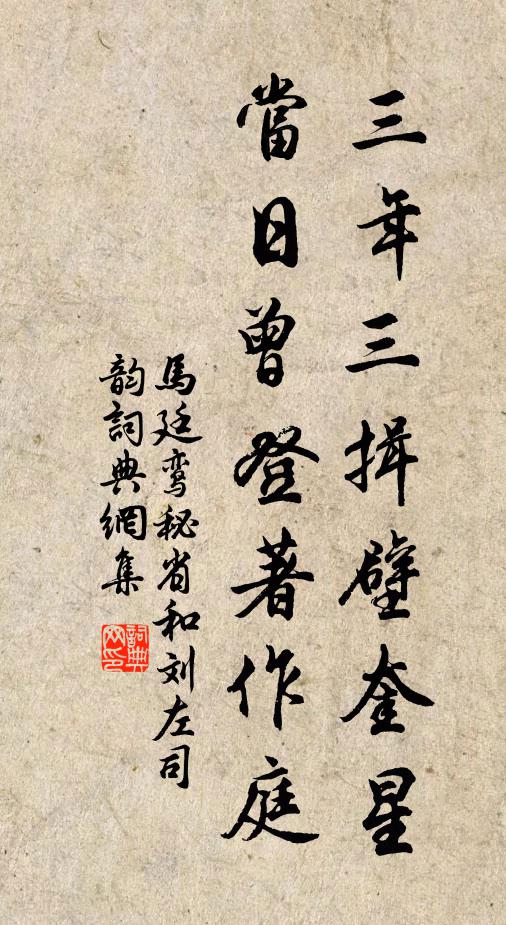 三年三揖壁奎星
當日曾登著作庭
馬廷鸾秘省和刘左司
韵詞典網集
詞典网印